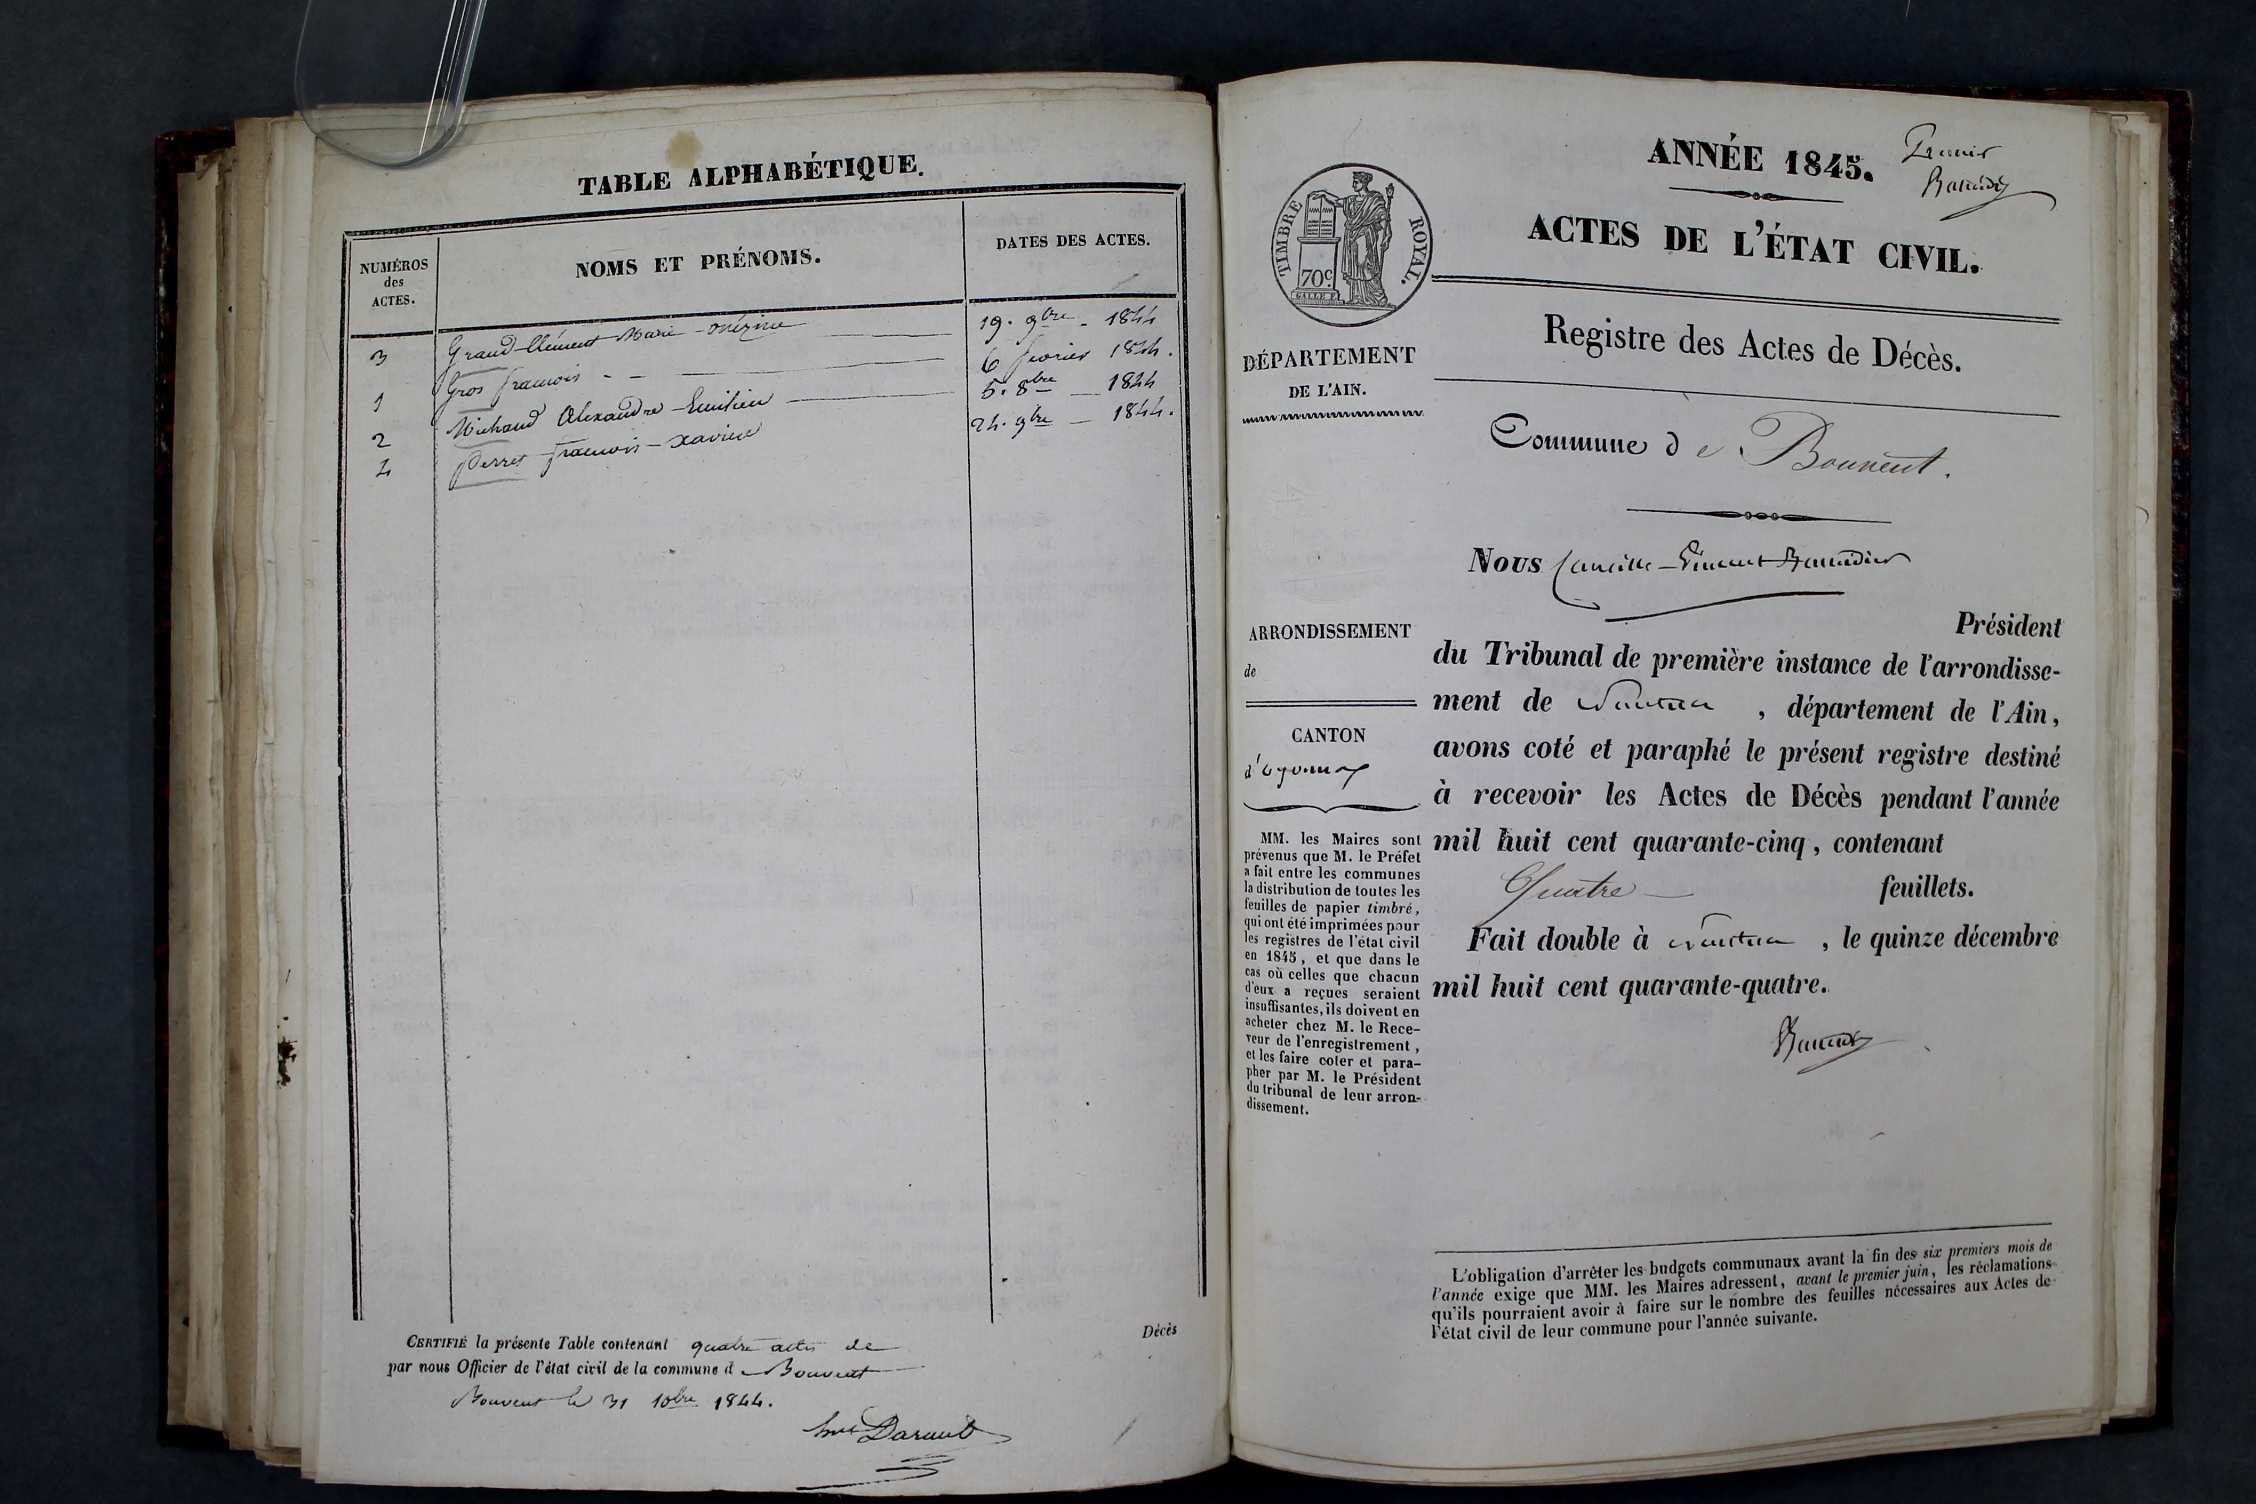 TABLE ALPHABÉTIQUE.
NUMÉROS
des
ACTES.
NOMS ET PRÉNOMS.
DATES DES ACTES.
3 Grand-Clément Marie - onézime 19. 9bre - 1844
1 Gros francois - - 6 fevrier 1844.
2 Michaud Alexandre - Emilien 5. 8bre - 1844
4 perret francois - xavier 24. 9bre - 1844.
CERTIFIÉ la présente Table contenant quatre actes de Décès
par nous Officier de l'état civil de la commune d Bouvent
Bouvent le 31 10bre 1844.
ANNÉE 1845.
Premier
ACTES DE L'ÉTAT CIVIL.
TIMBRE ROYAL.
70c.
Registre des Actes de Décès.
DÉPARTEMENT
DE L'AIN.
Commune de Bouvent.
Nous Camille - Vincent
Président
du Tribunal de première instance de l'arrondisse-
ment de Nantua, département de l'Ain,
avons coté et paraphé le présent registre destiné
à recevoir les Actes de Décès pendant l'année
mil huit cent quarante-cinq, contenant
Quatre - feuillets.
Fait double à Nantua, le quinze décembre
mil huit cent quarante-quatre.
ARRONDISSEMENT
de
CANTON
d'oyonnax
MM. les Maires sont
prévenus que M. le Préfet
a fait entre les communes
la distribution de toutes les
feuilles de papier timbré,
qui ont été imprimées pour
les registres de l'état civil
en 1845, et que dans le
cas où celles que chacun
d'eux a reçues seraient
insuffisantes, ils doivent en
acheter chez M. le Rece-
veur de l'enregistrement,
et les faire coter et para-
pher par M. le Président
du tribunal de leur arron-
dissement.
L'obligation d'arrêter les budgets communaux avant la fin des six premiers mois de
l'année exige que MM. les Maires adressent, avant le premier juin, les réclamations
qu'ils pourraient avoir à faire sur le nombre des feuilles nécessaires aux Actes de
l'état civil de leur commune pour l'année suivante.